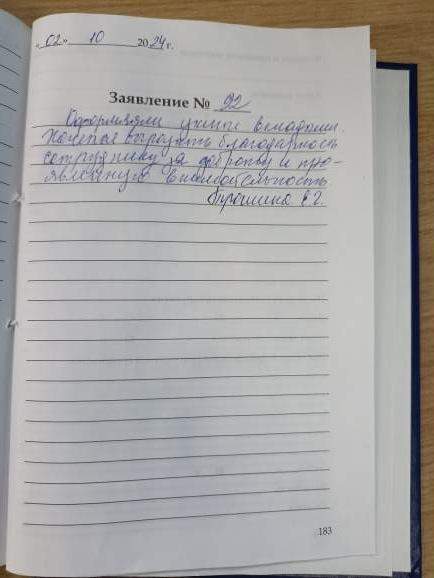 «02» 10 2024 г.
Заявление № 92
Оформляли
Хочется выразить благодарность
сотруднику за доброту и про-
явленную внимательность
183